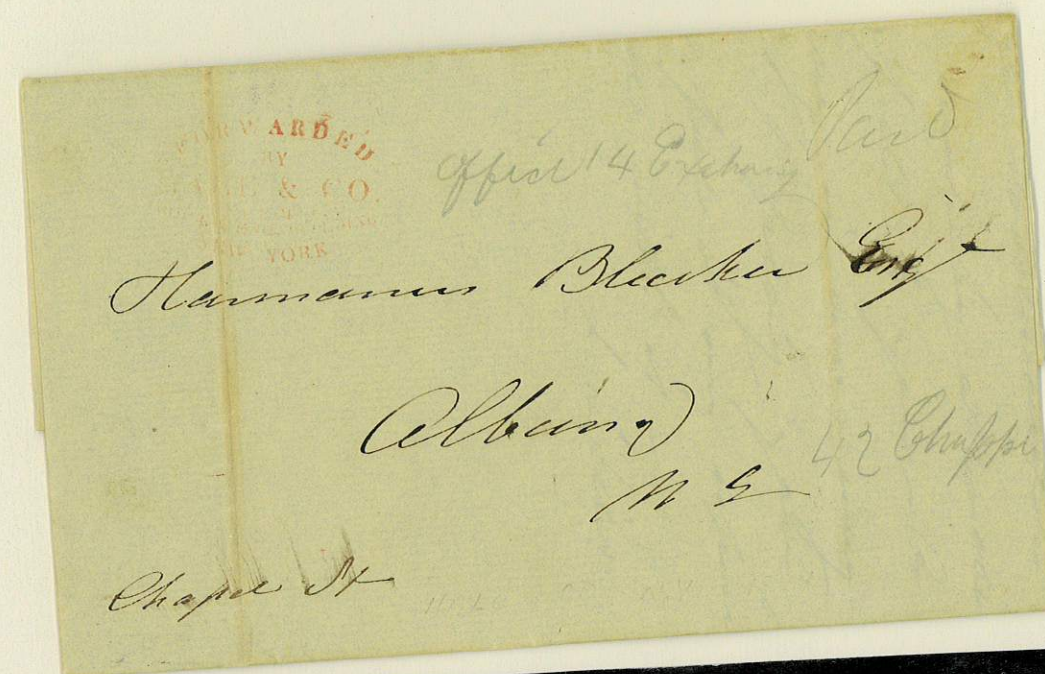 FORWARDED
BY
& CO.
NEW YORK
Paid
Office 14 Exchang
Harmanus Bleecker Esqr
Albany
N Y
42 Chappe
Chapel St